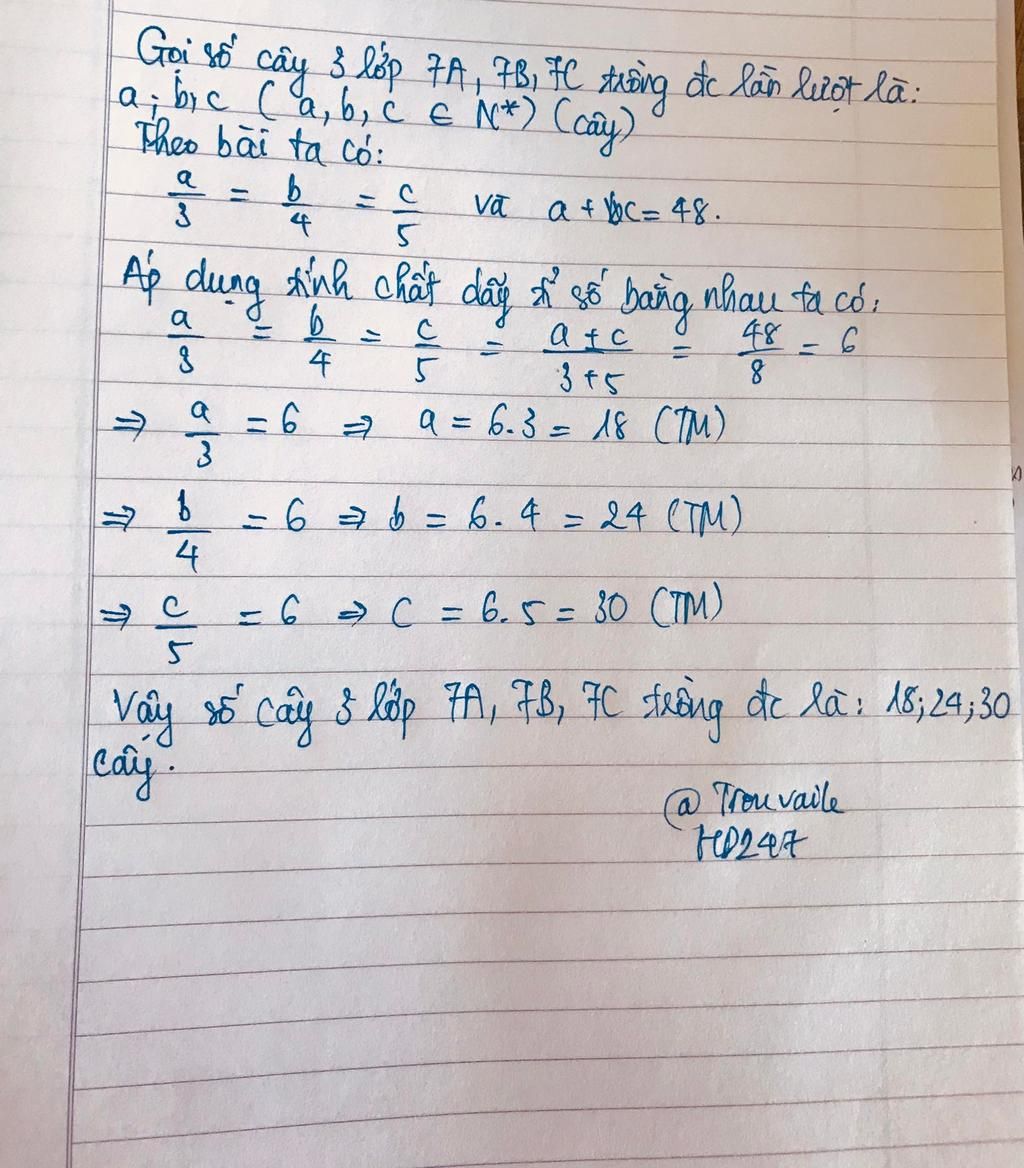 Gọi số cây 3 lớp 7A, 7B, 7C trồng đc lần lượt là:
a; b, c ( a, b, c ∈ N*) (cây)
Theo bài ta có:
a/3 = b/4 = c/5 và a + c = 48.
Áp dụng tính chất dãy tỉ số bằng nhau ta có:
a/3 = b/4 = c/5 = a + c/3 + 5 = 48/8 = 6
⇒ a/3 = 6 ⇒ a = 6.3 = 18 (TM)
⇒ b/4 = 6 ⇒ b = 6.4 = 24 (TM)
⇒ c/5 = 6 ⇒ C = 6.5 = 30 (TM)
Vậy số cây 3 lớp 7A, 7B, 7C trồng đc là: 18; 24; 30
cây.
@ Trouvaile
HD247